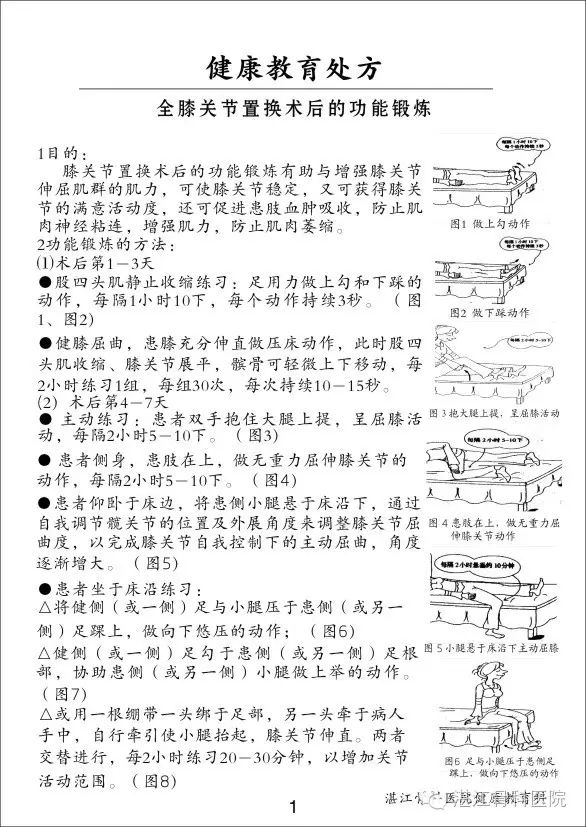 健康教育处方
全膝关节置换术后的功能锻炼
1目的：
膝关节置换术后的功能锻炼有助与增强膝关节
伸屈肌群的肌力，可使膝关节稳定，又可获得膝关
节的满意活动度，还可促进患肢血肿吸收，防止肌
肉神经粘连，增强肌力，防止肌肉萎缩。
2功能锻炼的方法：
⑴术后第1－3天
●股四头肌静止收缩练习：足用力做上勾和下踩的
动作，每隔1小时10下，每个动作持续3秒。（图
1、图2）
●健膝屈曲，患膝充分伸直做压床动作，此时股四
头肌收缩、膝关节展平，髌骨可轻微上下移动，每
2小时练习1组，每组30次，每次持续10－15秒。
⑵ 术后第4－7天
● 主动练习：患者双手抱住大腿上提，呈屈膝活
动，每隔2小时5－10下。（图3）
● 患者侧身，患肢在上，做无重力屈伸膝关节的
动作，每隔2小时5－10下。（图4）
●患者仰卧于床边，将患侧小腿悬于床沿下，通过
自我调节髋关节的位置及外展角度来调整膝关节屈
曲度，以完成膝关节自我控制下的主动屈曲，角度
逐渐增大。（图5）
●患者坐于床沿练习：
△将健侧（或一侧）足与小腿压于患侧（或另一
侧）足踝上，做向下悠压的动作；（图6）
△健侧（或一侧）足勾于患侧（或另一侧）足根
部，协助患侧（或另一侧）小腿做上举的动作。
（图7）
△或用一根绷带一头绑于足部，另一头牵于病人
手中，自行牵引使小腿抬起，膝关节伸直。两者
交替进行，每2小时练习20－30分钟，以增加关节
活动范围。（图8）
每隔1小时10下
每个动作持续3秒
图1 做上勾动作
每隔1小时10下
每个动作持续3秒
图2 做下踩动作
每隔2小时5-10下
图3抱大腿上提，呈屈膝活动
每隔2小时5-10下
图4患肢在上，做无重力屈
伸膝关节动作
每隔2小时悬垂约10分钟
图5小腿悬于床沿下主动屈膝
图6 足与小腿压于患侧足
踝上，做向下悠压的动作
湛江骨科医院健康教育
湛江骨科医院
1